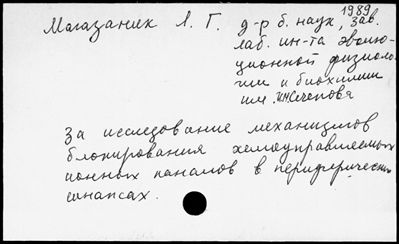 1989
Магазаник Л. Г. д-р б. наук, зав.
лаб. ин-та эволю-
ционной физиоло-
гии и биохимии
им. И.М.Сеченова
За исследование механизмов
блокирования хемоуправляемых
ионных каналов в периферических
синапсах.